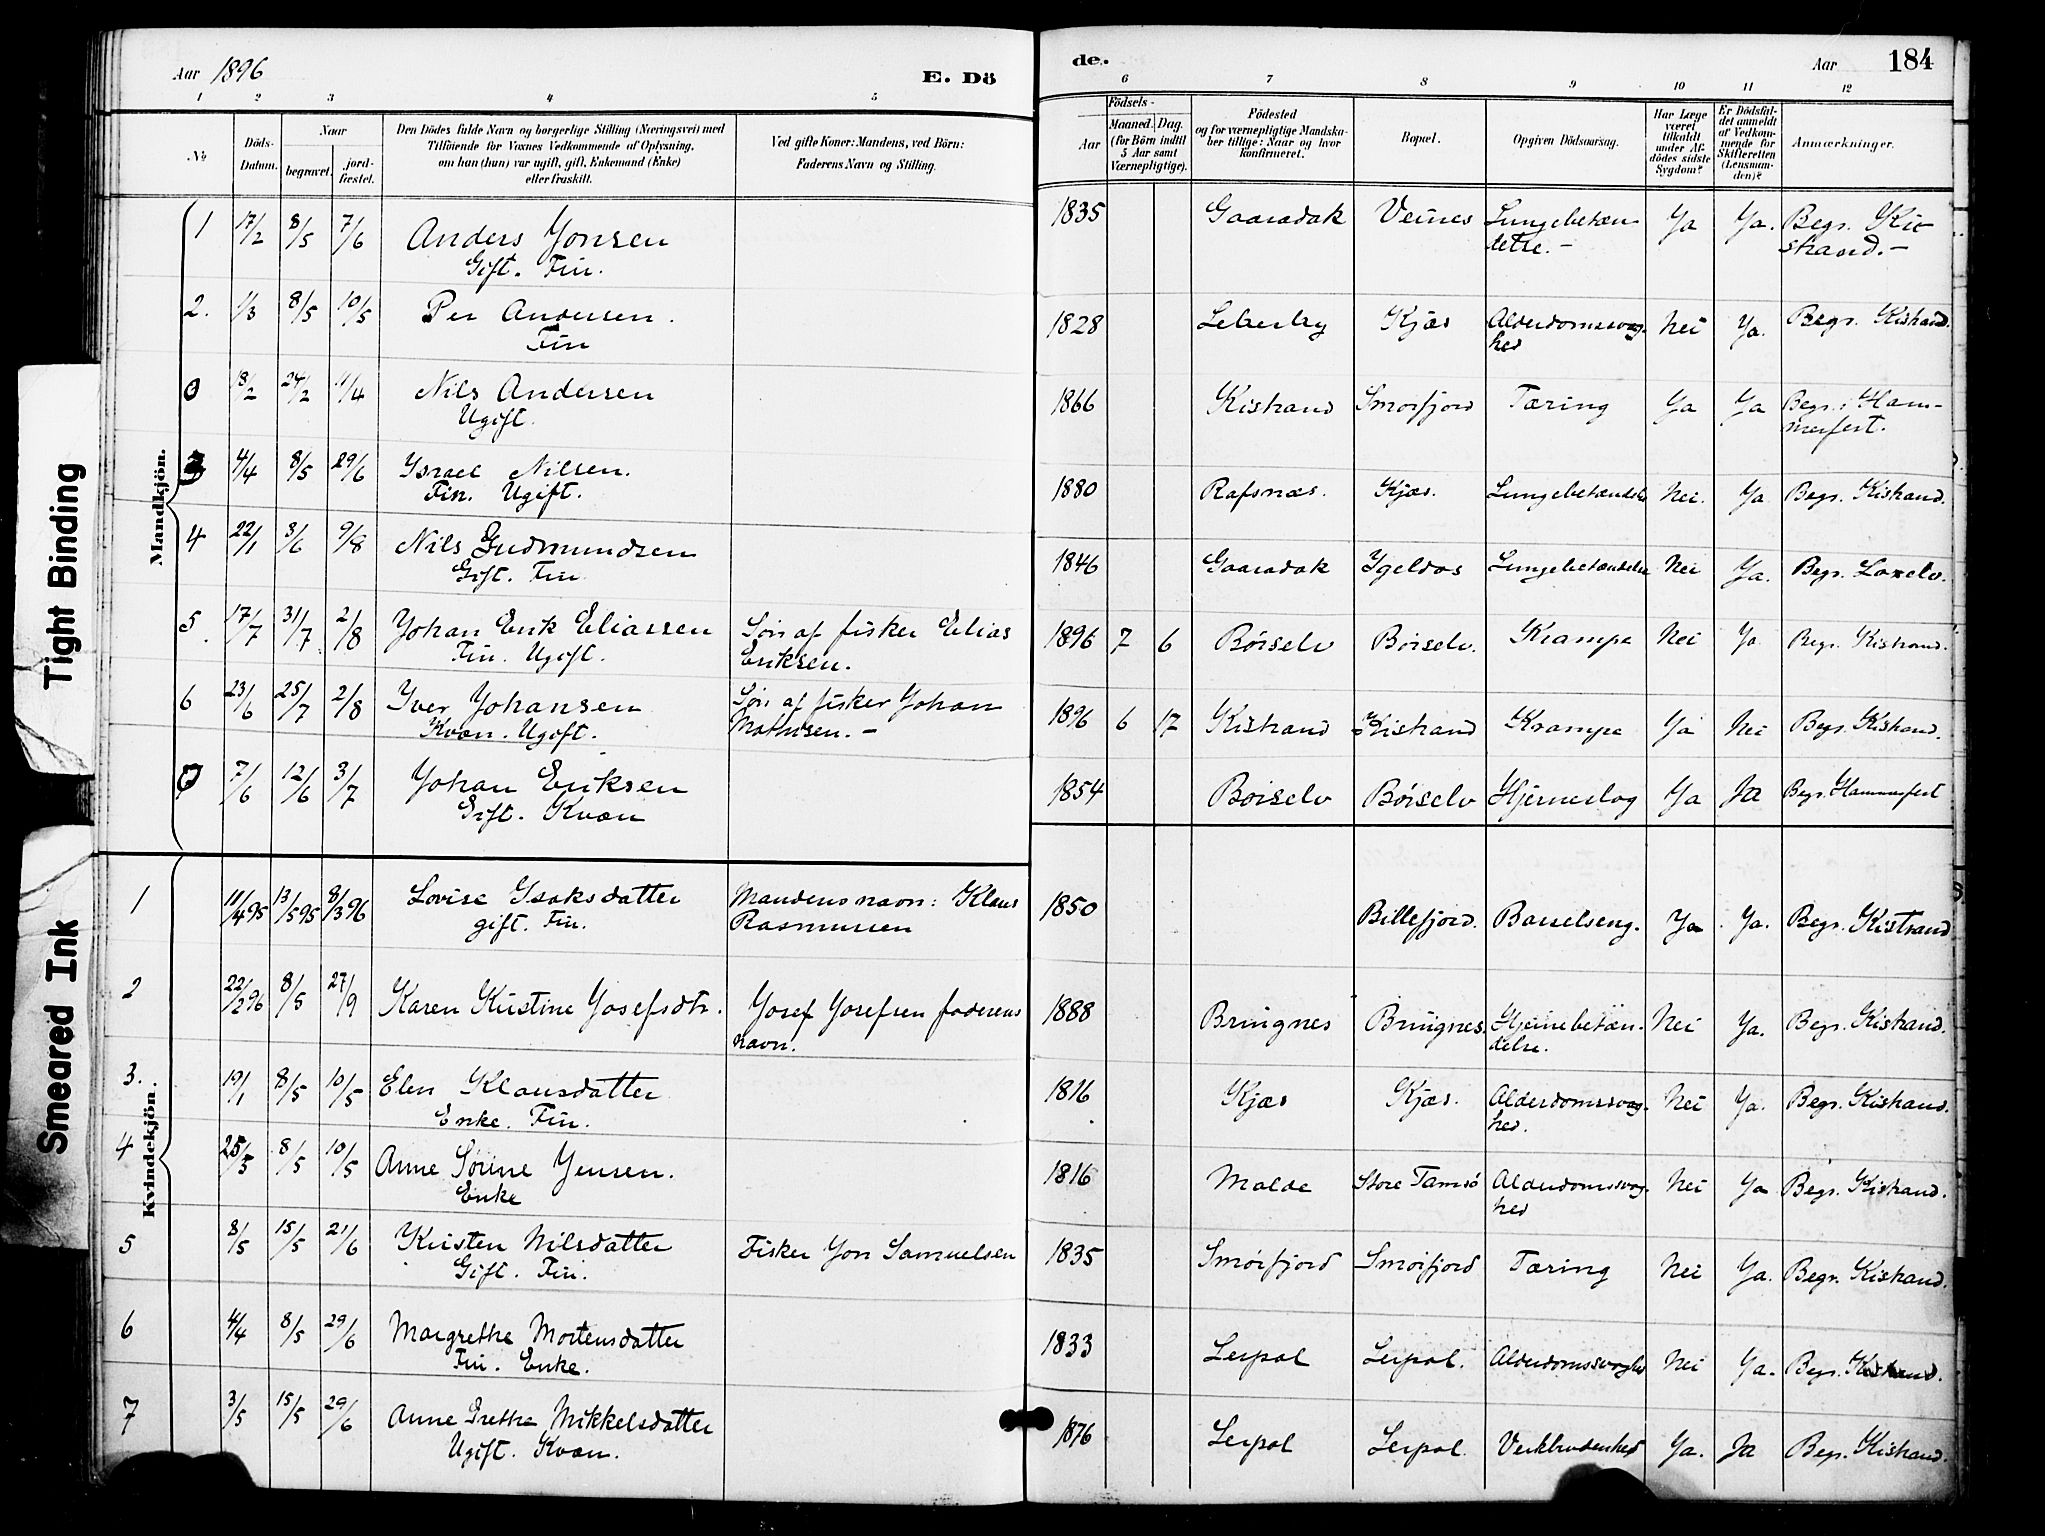 Aar 1896
E. Dö
1 2 3 4 5
No
Döds-Datum.
Naar
begravet.
jord-fæstet.
Den Dödes fulde Navn og borgerlige Stilling (Næringsvei) med
Tilföiende for Voxnes Vedkommende af Oplysning,
om han (hun) var ugift, gift, Enkemand (Enke)
eller fraskilt.
Ved gifte Koner: Mandens, ved Börn:
Faderens Navn og Stilling.
Mandkjön.
1 17/2 8/5 7/6 Anders Jonsen
Gift. Fin.
2. 1/3 8/5 10/5 Per Andersen.
Fin
0 18/2 24/2 11/4 Nils Andersen
Ugift.
3 4/4 8/5 29/6 Israel Nilsen.
Fin. Ugift.
4 22/1 3/6 9/8 Nils Gudmundsen
Gift. Fin
5 17/7 31/7 2/8 Johan Erik Eliassen Søn af fisker Elias
Fin. Ugift. Eriksen.
6 23/6 25/7 2/8 Iver Johansen Søn af fisker Johan
Kvæn. Ugift. Mathisen. –
7/6 12/6 3/7 Johan Eriksen
Gift. Kvæn
Kvindekjön
1 11/4 95 13/5 95 8/3 96 Lovise Isaksdatter Mandens navn: Klaus
gift. Fin. Rasmussen
2 22/2 96 8/5 27/9 Karen Kristine Josefsdtr. Josef Josefsen faderens
navn.
3. 19/1 8/5 10/5 Elen Klausdatter
Enke. Fin.
4 25/3 8/5 10/5 Anne Sørine Jensen.
Enke
5 8/5 15/5 21/6 Kristen Nilsdatter Fisker Jon Samuelsen
Gift. Fin.
6 4/4 8/5 29/6 Margrethe Mortensdatter
Fin. Enke.
7 3/5 15/5 29/6 Anne Grethe Mikkelsdatter
Ugift. Kvæn.
de.
Aar 184
6 7 8 9 10 11 12
Aar
Födsels-
Maaned. Dag.
(for Börn indtil
5 Aar samt
Værnepligtige).
Födested
og for værnepligtige Mandska-
ber tillige: Naar og hvor
konfirmeret.
Bopæl.
Opgiven Dödsaarsag.
Har Læge
været
tilkaldt
under Af-
dödes sidste
Sygdom?
Er Dödsfal-
det anmeldt
af Vedkom-
mende for
Skifteretten
(Lensman-
den)?
Anmærkninger.
1835 Gaaradak Veines Lungebetæn- Ja Ja. Begr. Ki-
delse. – strand. –
1828 Kjæs Alderdomssvag- Nei Ja. Begr. Kistrand.
hed
1866 Kistrand Smørfjord Tæring Ja Ja Begr. i Ham-
merfest.
1880 Rafsnæs. Kjæs. Lungebetændelse Nei. Ja Begr. Kistrand.
1846 Gaaradak Igeldas Lungebetændelse Nei Ja. Begr. Laxelv.
1896 7 6 Børselv Børselv. Krampe Nei Ja Begr. Kistrand.
1896 6 17 Kistrand Kistrand Krampe Ja Nei Begr. Kistrand.
1854 Børselv Børselv Hjerneslag Ja Ja Begr. Hammerfest
1850 Billefjord. Barselseng. Ja Ja. Begr. Kistrand
1888 Bringnes Bringnes. Hjernebetæn- Nei Ja. Begr. Kistrand.
delse.
1816 Kjæs Kjæs. Alderdomssvag- Nei Ja. Begr. Kistrand.
hed.
1816 Molde Store Tamsø Alderdomssvag- Nei Ja Begr. Kistrand.
hed
1835 Smørfjord Smørfjord Tæring Nei Ja. Begr. Kistrand.
1833 Leirpol Leirpol. Alderdomssvaghed Nei Ja. Begr. Kistrand.
1876 Leirpol Leirpol. Ja. Ja Begr. Kistrand.
Tight Binding
Smeared Ink